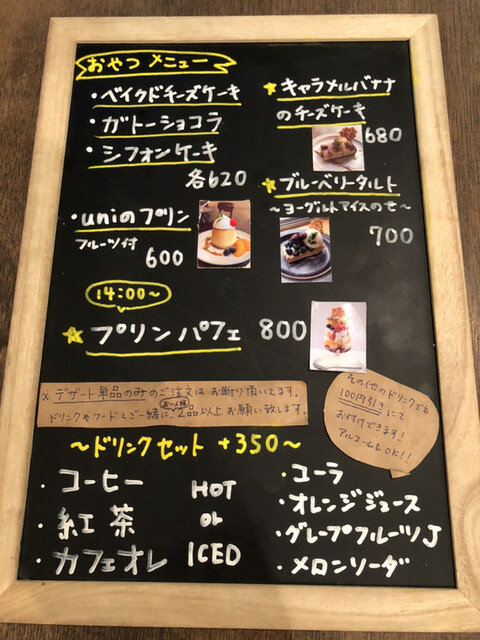 おやつ メニュー
・ベイクドチーズケーキ
・ガトーショコラ
・シフォンケーキ
各620
・uniのプリン
フルーツ付
600
★キャラメルバナナ
のチーズケーキ
680
★ブルーベリータルト
～ヨーグルトアイスのせ～
700
14:00～
★プリンパフェ 800
※デザート単品のみのご注文はお断り頂いてます。
お一人様
ドリンクやフードとご一緒に2品以上お願い致します。
その他のドリンクでも
100円引きにて
お付けできます!
アルコールもOK!!
～ドリンクセット +350～
・コーヒー
・紅茶
・カフェオレ
HOT
or
ICED
・コーラ
・オレンジジュース
・グレープフルーツJ
・メロンソーダ